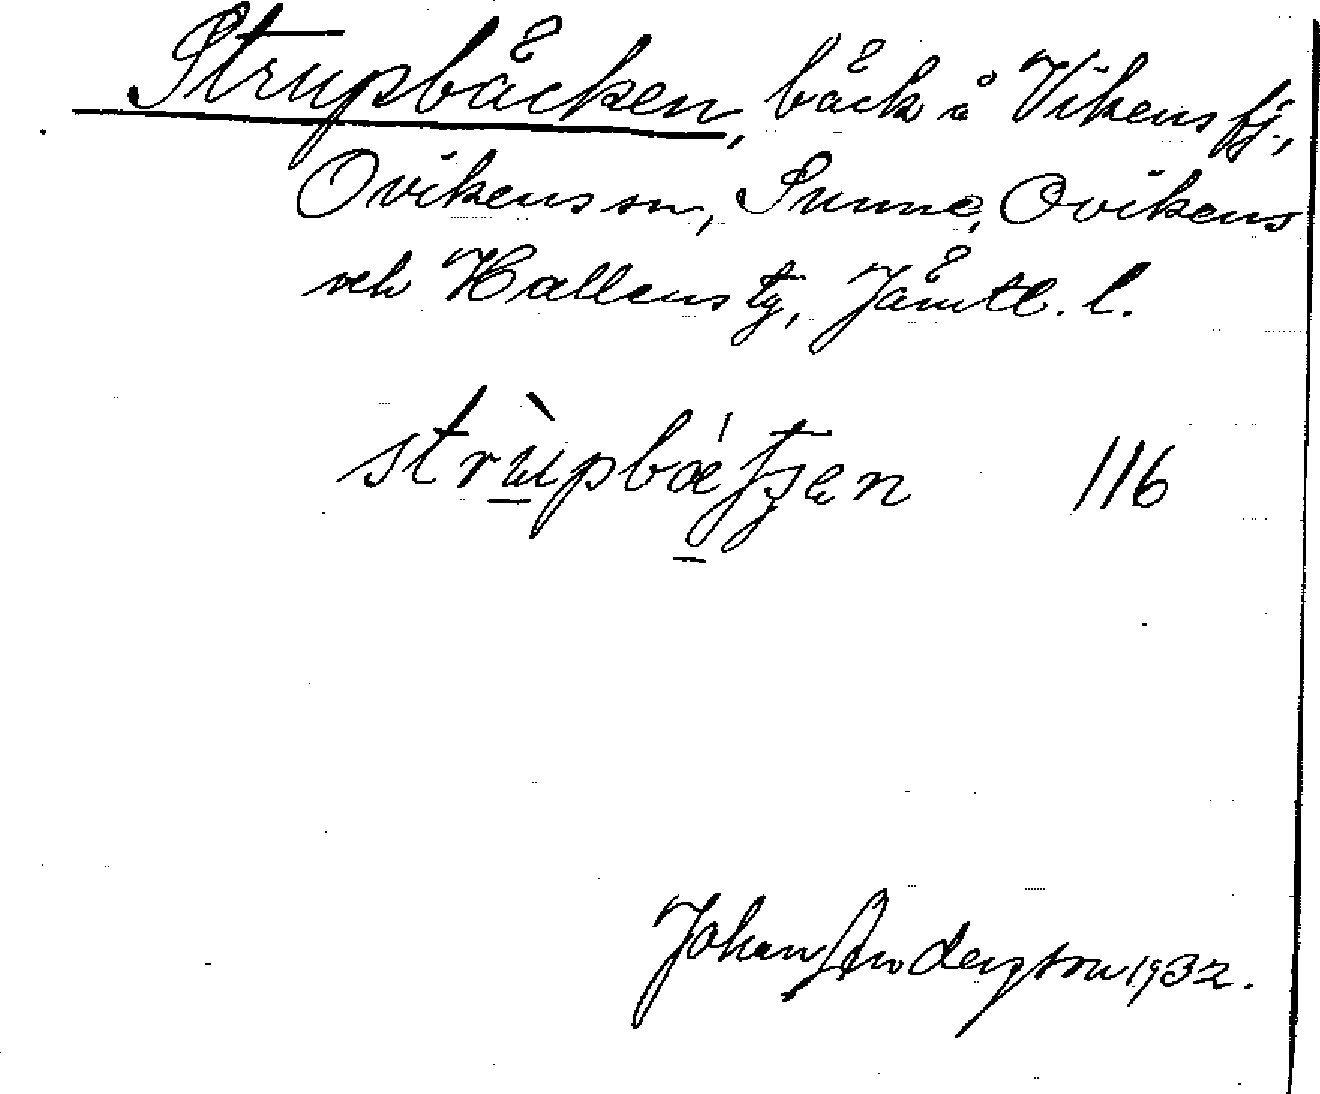 Strupbäcken, bäck å Vikens fj.,
Ovikens sn, Sunne, Ovikens
och Hallens tg, Jämtl. l.
116
Johan Anderson 1932.